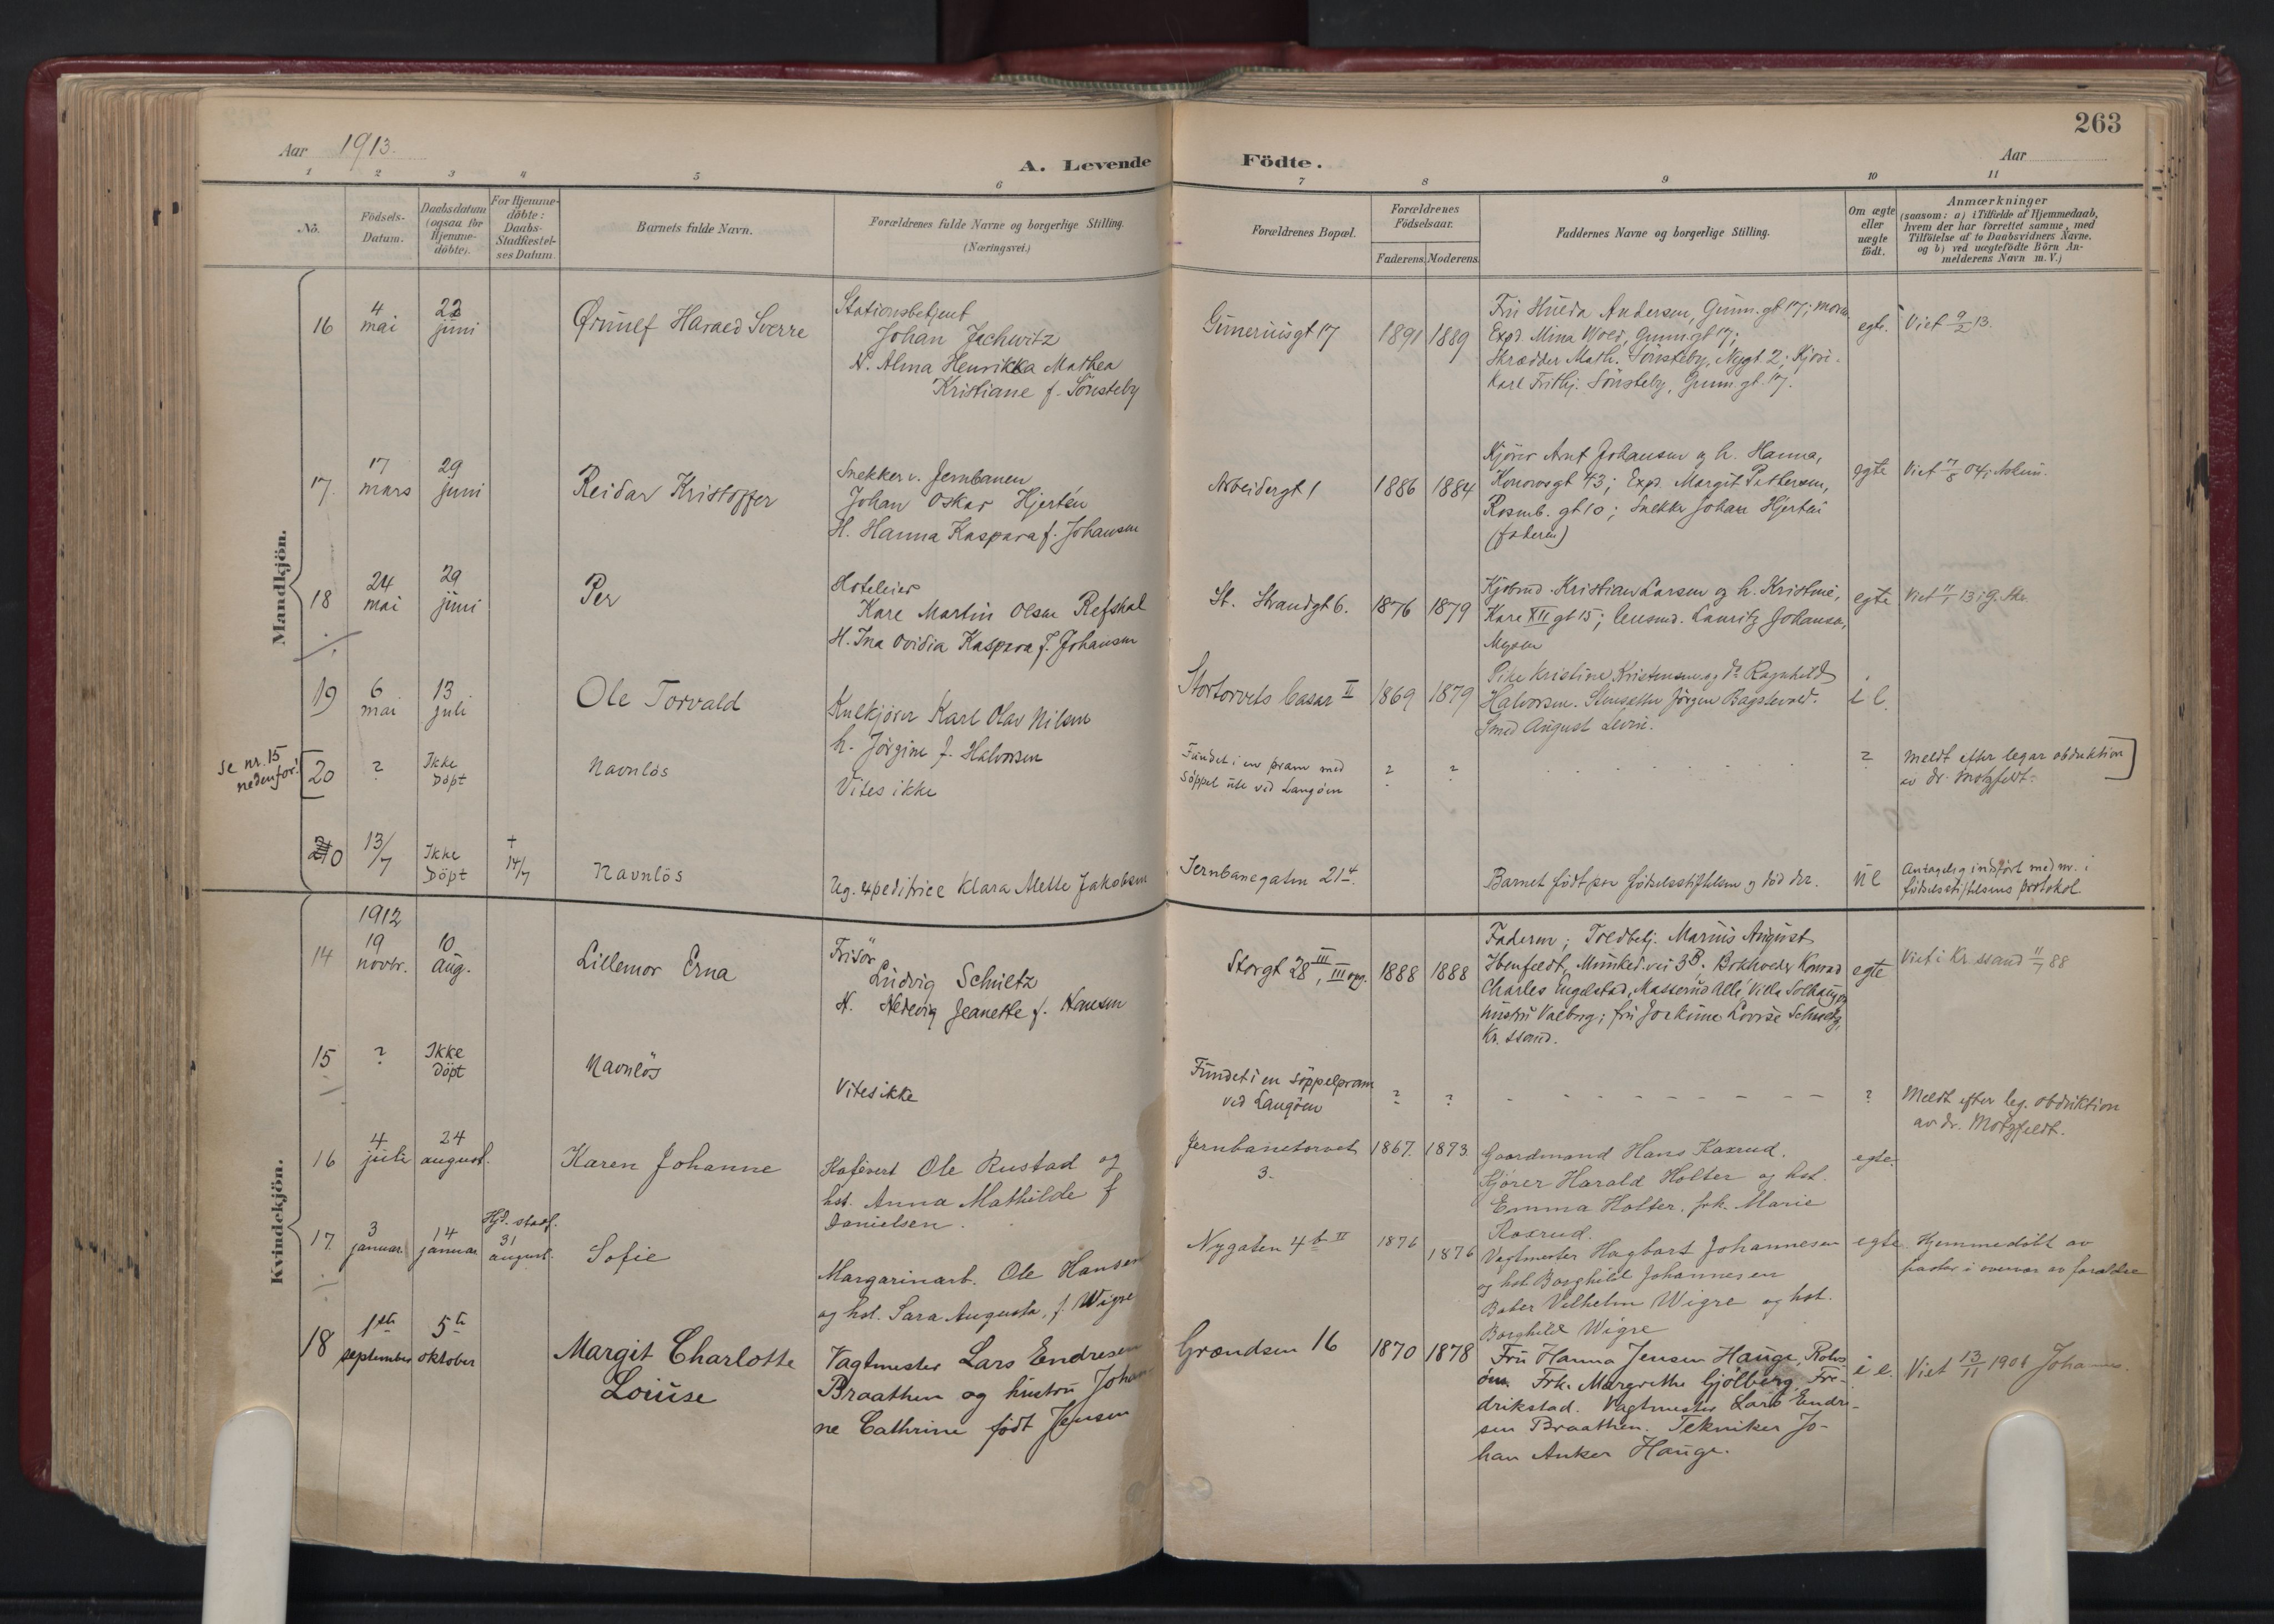 263
Aar 1913.
A. Levende Födte.
Aar
1 2 3 4 5 6 7 8 9 10 11
No.
Födsels-
Datum.
Daabsdatum
(ogsaa for
Hjemme-
döbte).
For Hjemme-
döbte:
Daabs-
Stadfæstel-
ses Datum.
Barnets fulde Navn.
Forældrenes fulde Navne og borgerlige Stilling.
(Næringsvei.)
Forældrenes Bopæl.
Forældrenes
Födselsaar.
Faderens. Moderens.
Faddernes Navne og borgerlige Stilling.
Om ægte
eller
uægte
födt.
Anmærkninger
(saasom: a) i Tilfælde af Hjemmedaab,
hvem der har forrettet samme, med
Tilföielse af to Daabsvidners Navne.
og b) ved uægtefödte Börn An-
melderens Navn m. V.)
Mandkjön.
16
4
mai
22
juni
Ørnulf Harald Sverre
Stationsbetjent
Johan Jachwitz
H. Alma Henrikka Mathea
Kristiane f. Sönsteby
Gunerusgt 17
1891
1889
Fru Hulda Andersen, Gunn.gt 17; moren
Expd. Mina Wold, Gunn.gt 17;
Skrædder Math. Sönsteby, Nygt. 2; Kjöri-
Karl Frithj. Sönsteby, Gunn gt. 17.
egte.
Viet 9/2 13.
17.
17
mars
29
juni
Reidar Kristoffer
Snekker v. Jernbanen
Johan Oskar Hjertén
H. Hanna Kaspara f. Johansen
Arbeidergt 1
1886
1884
Kjörer Arnt Johansen og h. Hanna,
Konowsgt 43; Exp. Margit Pettersen,
Rosenb. gt 10; Snekker Johan Hjertén
(faderen)
egte
Viet 7/8 04;
18
24
mai
29
juni
Per
Hoteleier
Kare Martin Olsen Refshal
H. Ina Ovidia Kaspara f. Johansen
St. Strandgt 6.
1876
1879
Kjöbmd. Kristian Larsen og h. Kristine,
Karl XII gt 15; lensmd. Lauritz Johansen,
Mysen
egte
Viet 11/1 13 i G. Aker
19
6
mai
13
juli
Ole Torvald
Kulkjörer Karl Olav Nilsen
h. Jörgine f. Halvorsen
Stortorvets basar II
1869
1879
Pike Kristine Kristensen og do Ragnhild
Halvorsen. Stensætter Jörgen Bagstevold.
Smed August Levin.
i e.
se nr. 15
nedenfor!
20
?
Ikke
Döpt
Navnlös
Vites ikke
Fundet i en pram med
Söppel ute ved Langöen
?
?
?
Meldt efter legar obduktion
av dr. Motzfeldt.
20
13/7
Ikke
Döpt
+
14/7
Navnlös
Ug. expeditrice Klara Mette Jakobsen
Jernbanegaten 21 4.
Barnet födt paa födselsstiftelsen og död der.
ue
Antagelig indfört med nr. i
födselsstiftelsens protokol.
Kvindekjön.
14
1912
19
novbr.
10
aug.
Lillemor Erna
Frisör
Ludvig Schultz
H. Hedevig Jeanette f. Hansen
Storgt 28 III, III opg.
1888
1888
Faderen; Toldbetj. Marius August
Ibenfeldt, Munked.vei 3B; Bokholder Konrad
Charles Engelstad, Masserud Allé, Villa Solhaug og
hustru Valborg; fru Jorkime Lovise Schultz,
Kr. ssand.
egte
Viet i Kr. ssand 11/7 88
15
?
Ikke
Döpt
Navnlös
Vites ikke
Fundet i en söppelpram
ved Langöen
?
?
?
Meldt efter leg. obduktion
av dr. Motzfeldt.
16
4
juli
24
august.
Karen Johanne
Kafévert Ole Rustad og
hst. Anna Mathilde f
Danielsen.
Jernbanetorvet
3.
1867.
1873.
Gaardmand Hans Kaxrud.
Kjörer Harald Holter og hst.
Emma Holter. frk. Marie
Kaxrud.
egte.
17.
3
januar.
14
januar
Hjd. stadf.
31
august.
Sofie
Margarinarb. Ole Hansen
og hst. Sara Augusta, f. Wigre
Nygaten 4b II
1876
1876
Vagtmester Hagbart Johannesen
og hst. Borghild Johannesen
Baker Vilhelm Wigre og hst.
Borghild Wigre
egte
Hjemmedöbt av
pastor i overvær av forældre
18
1ste
september
5te
oktober
Margit Charlotte
Louise
Vagtmester Lars Endresen
Braathen og hustru Johan-
ne Cathrine födt Jensen
Grændsen 16
1870
1878
Fru Hanna Jensen Hauge, Rolvs-
öen. Frk. Margrethe Gjölberg, Fre-
drikstad. Vagtmester Lars Endre-
sen Braathen. Tekniker Jo-
han Anker Hauge.
i e.
Viet 13/11 1908 Johannes.